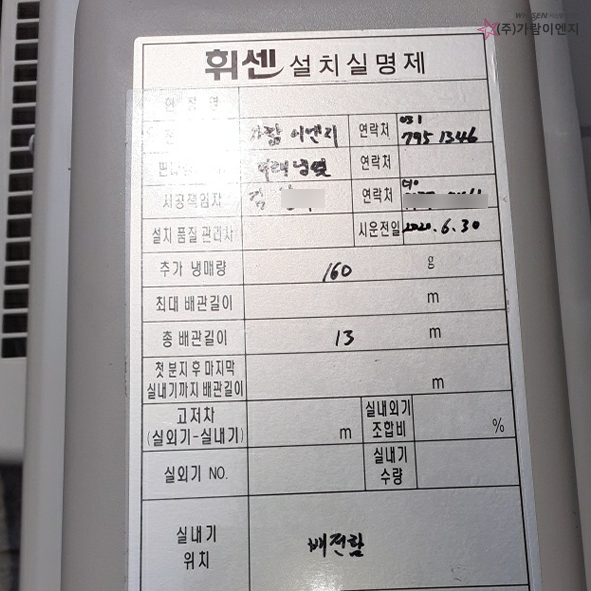 (주)가람이엔지
휘센 설치실명제
현 장 명
가람 이엔지 연락처 031 795 1346
연락처
시공책임자 김 연락처
설치 품질 관리사 시운전일 2020.6.30
추가 냉매량 160 g
최대 배관길이 m
총 배관길이 13 m
첫 분지 후 마지막
실내기까지 배관길이 m
고저차
(실외기-실내기) m
실내외기
조합비 %
실외기 NO.
실내기
수량
실내기
위치
배전함